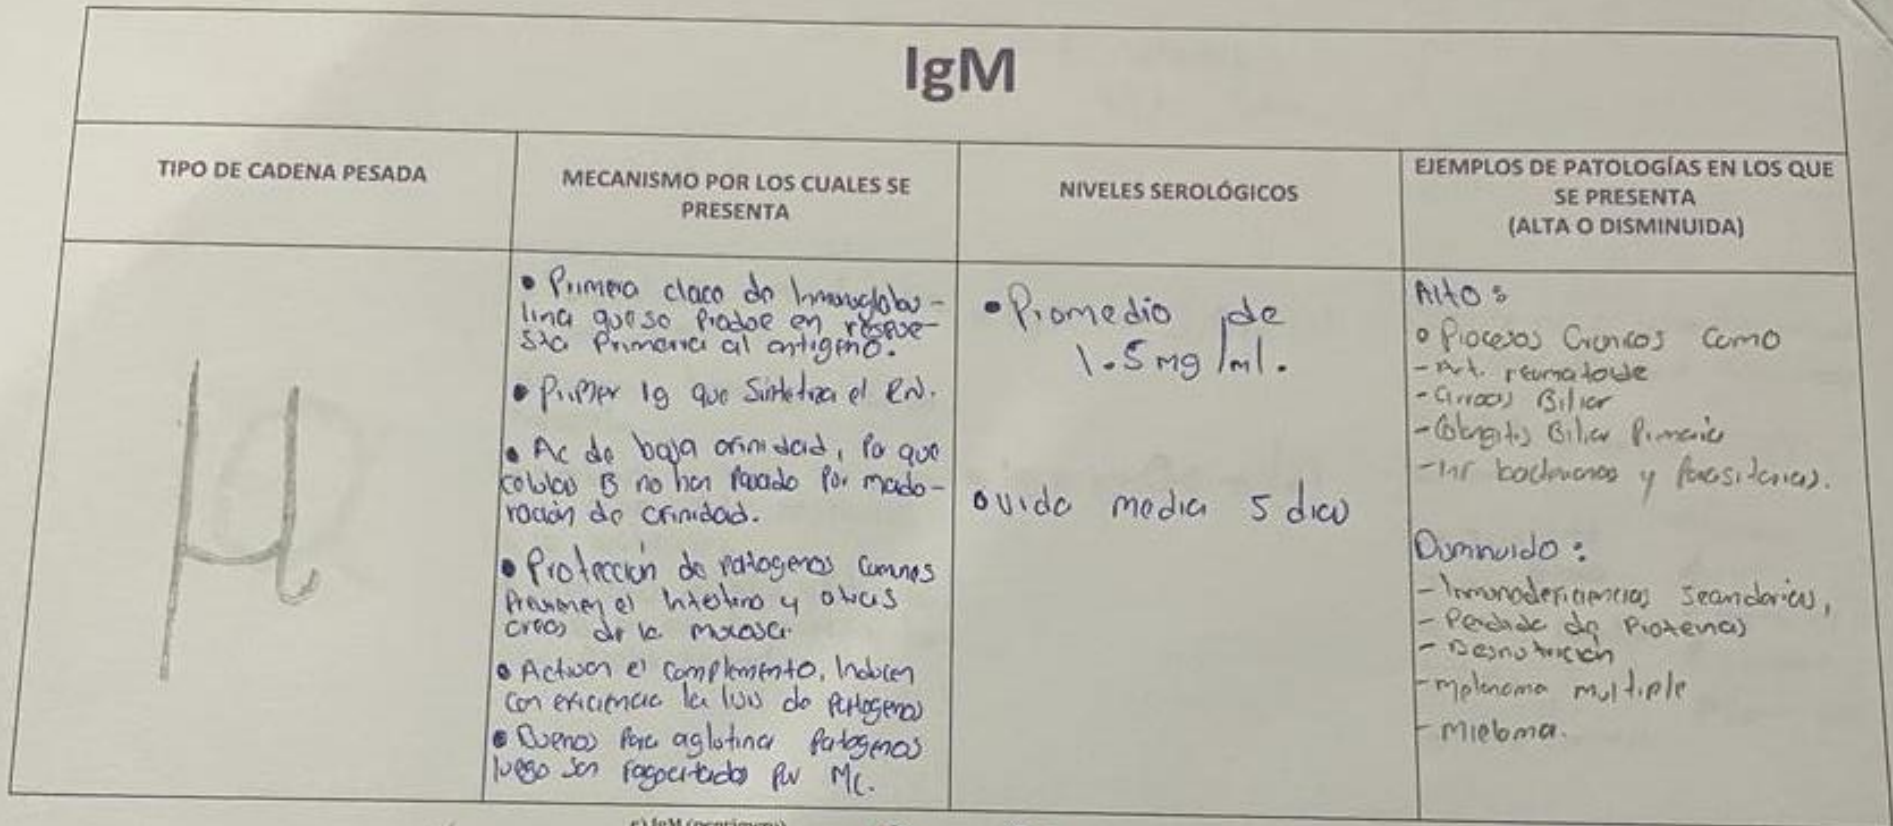 IgM
TIPO DE CADENA PESADA
MECANISMO POR LOS CUALES SE
PRESENTA
NIVELES SEROLÓGICOS
EJEMPLOS DE PATOLOGÍAS EN LOS QUE
SE PRESENTA
(ALTA O DISMINUIDA)
μ
• Primera clase de Inmunoglobu-
lina que se produce en respue-
sta Primaria al antigeno.
• Primer Ig que Sintetiza el RN.
• Ac de baja afinidad, Pa que
celulas B no han Pasado Por madu-
ración de afinidad.
• Protección de patogenos comunes
el intestino y otras
areas de la mucosa.
• Activan el complemento, Inducen
con eficiencia la lisis de patogenos
• Buenos Para aglutinar Patogenos
luego son fagocitados Por MC.
• Promedio de
1.5 mg/ml.
• Vida media 5 dias
Alto:
• Procesos Cronicos Como
- Art. reumatoide
- Cirrosis Biliar
- Colangitis Biliar Primaria
- Inf bacterianas y Parasitarias.
Disminuido:
- Inmunodeficiencias Secundarias,
- Perdida de Proteinas
- Desnutrición
- multiple
- Mieloma.
c) IgM (pentámero)